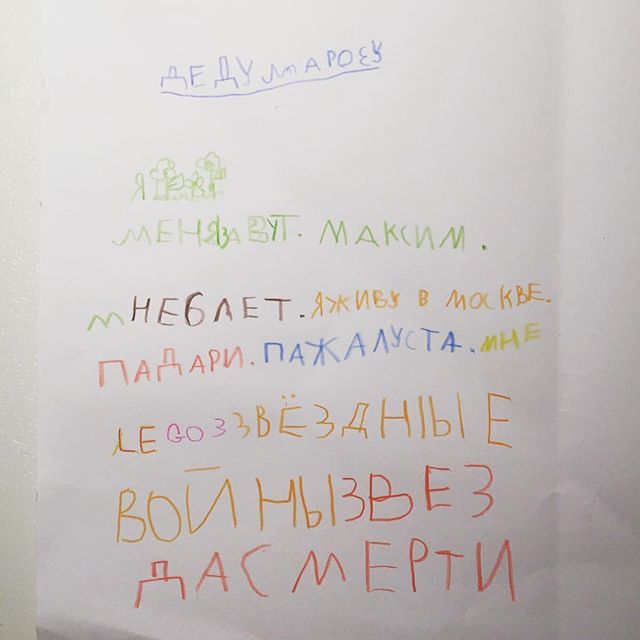 ДЕДУ МАРОЗУ
Я
МЕНЯЗАВУТ. МАКСИМ.
МНЕ6ЛЕТ. ЯЖИВУ В МОСКВЕ.
ПАДАРИ. ПАЖАЛУСТА. МНЕ
LEGO ЗЗВЁЗДНЫЕ
ВОЙНЫЗВЕЗ
ДАСМЕРТИ